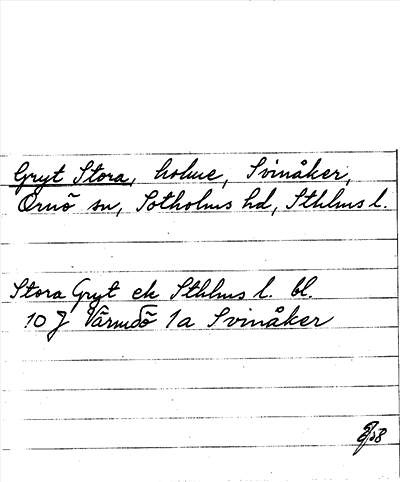 Gryt Stora, holme, Svinåker,
Ornö sn, Sotholms hd, Sthlms l.
Stora Gryt ek Sthlms l. bl.
10 J Värmdö 1a Svinåker